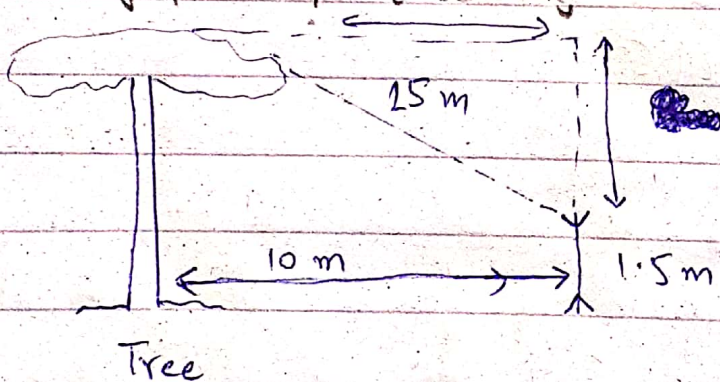 15 m
10 m
1.5 m
Tree